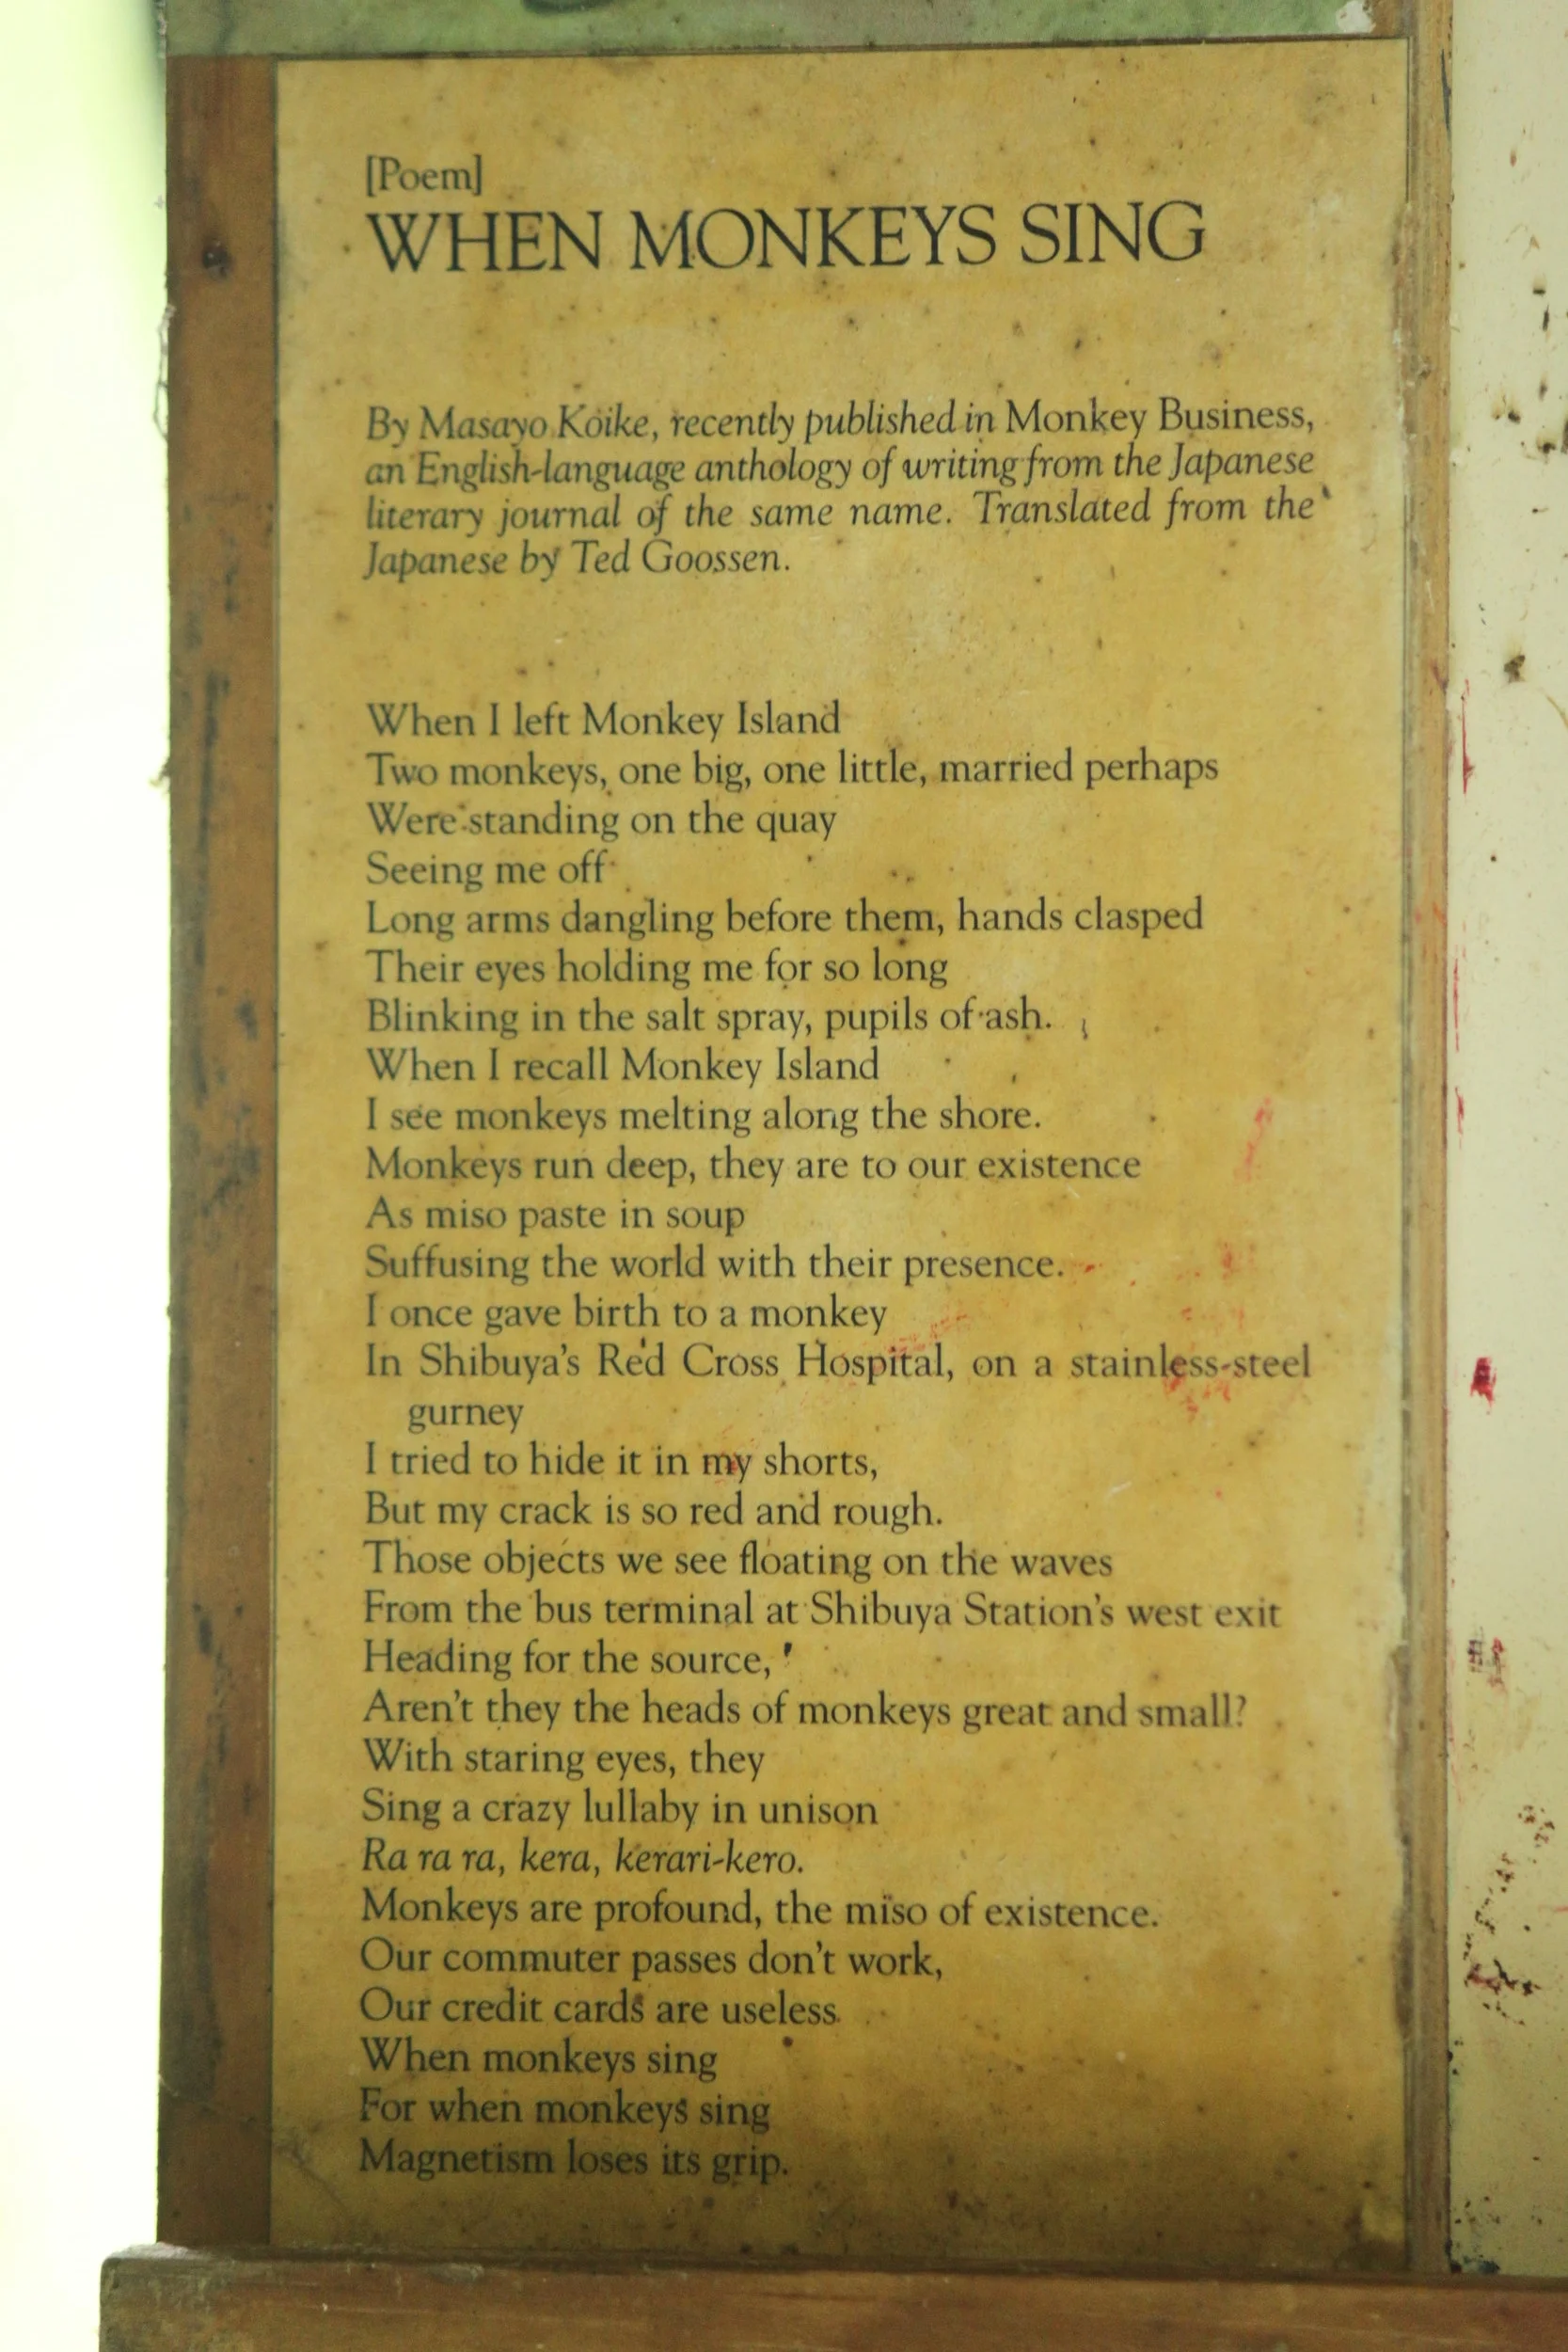 [Poem]
WHEN MONKEYS SING
By Masayo Koike, recently published in Monkey Business,
an English-language anthology of writing from the Japanese
literary journal of the same name. Translated from the
Japanese by Ted Goossen.
When I left Monkey Island
Two monkeys, one big, one little, married perhaps
Were standing on the quay
Seeing me off
Long arms dangling before them, hands clasped
Their eyes holding me for so long
Blinking in the salt spray, pupils of ash.
When I recall Monkey Island
I see monkeys melting along the shore.
Monkeys run deep, they are to our existence
As miso paste in soup
Suffusing the world with their presence.
I once gave birth to a monkey
In Shibuya's Red Cross Hospital, on a stainless-steel
gurney
I tried to hide it in my shorts,
But my crack is so red and rough.
Those objects we see floating on the waves
From the bus terminal at Shibuya Station's west exit
Heading for the source,
Aren't they the heads of monkeys great and small?
With staring eyes, they
Sing a crazy lullaby in unison
Ra ra ra, kera, kerari-kero.
Monkeys are profound, the miso of existence.
Our commuter passes don't work,
Our credit cards are useless
When monkeys sing
For when monkeys sing
Magnetism loses its grip.